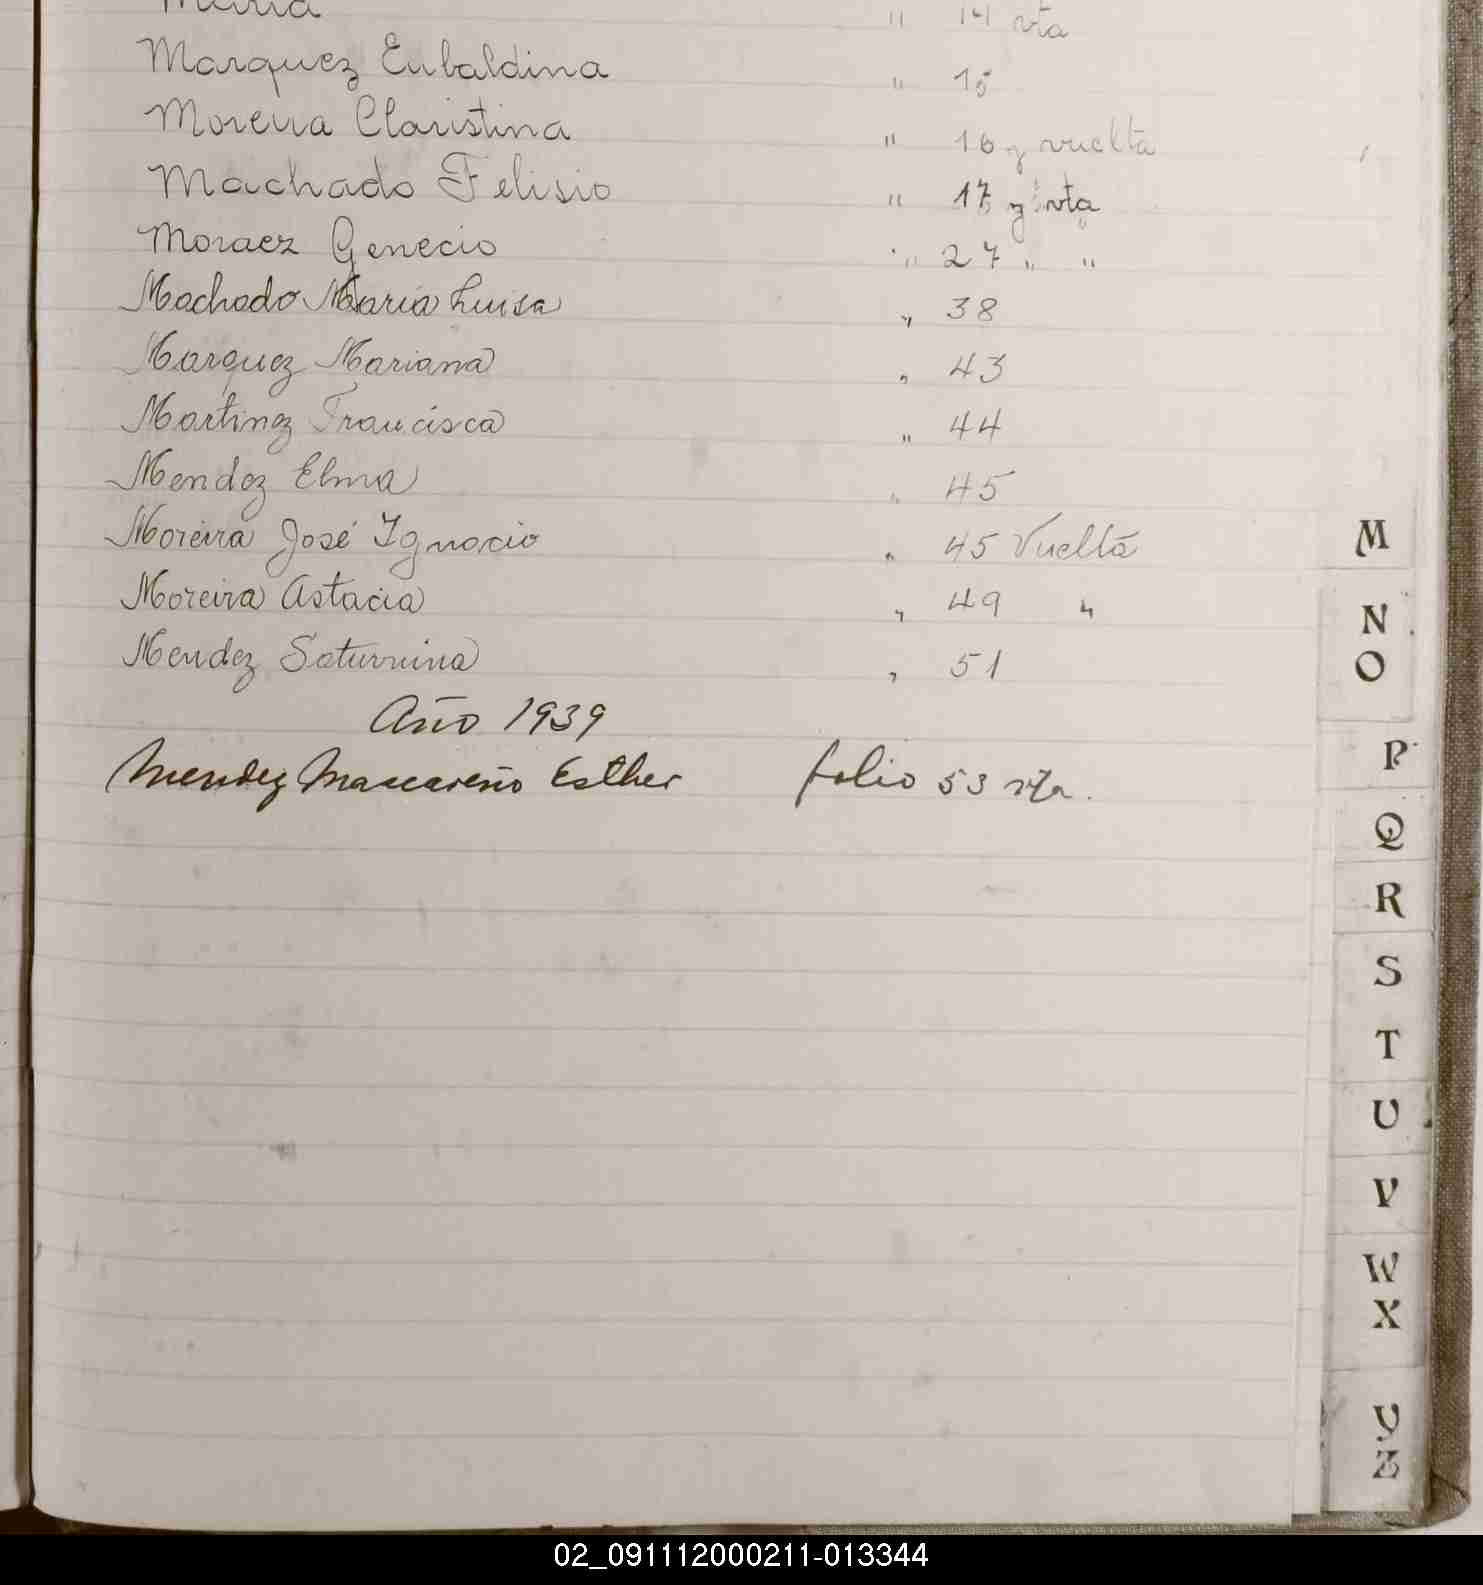 Maria " 14 vta
Marquez Eubaldina " 15
Moreira Claristina " 16 y vuelta
Machado Felisio " 17 y vta
Moraez Genecio " 27 " "
Machado Maria Luisa " 38
Marquez Mariana " 43
Martinez Francisca " 44
Mendez Elma " 45
Moreira José Ignacio " 45 Vuelta
Moreira Astacia " 49 "
Mendez Saturnina " 51
Año 1939
Mendez Mascareño Esther folio 53 vta.
M
N
O
P
Q
R
S
T
U
V
W
X
Y
Z
02_091112000211-013344